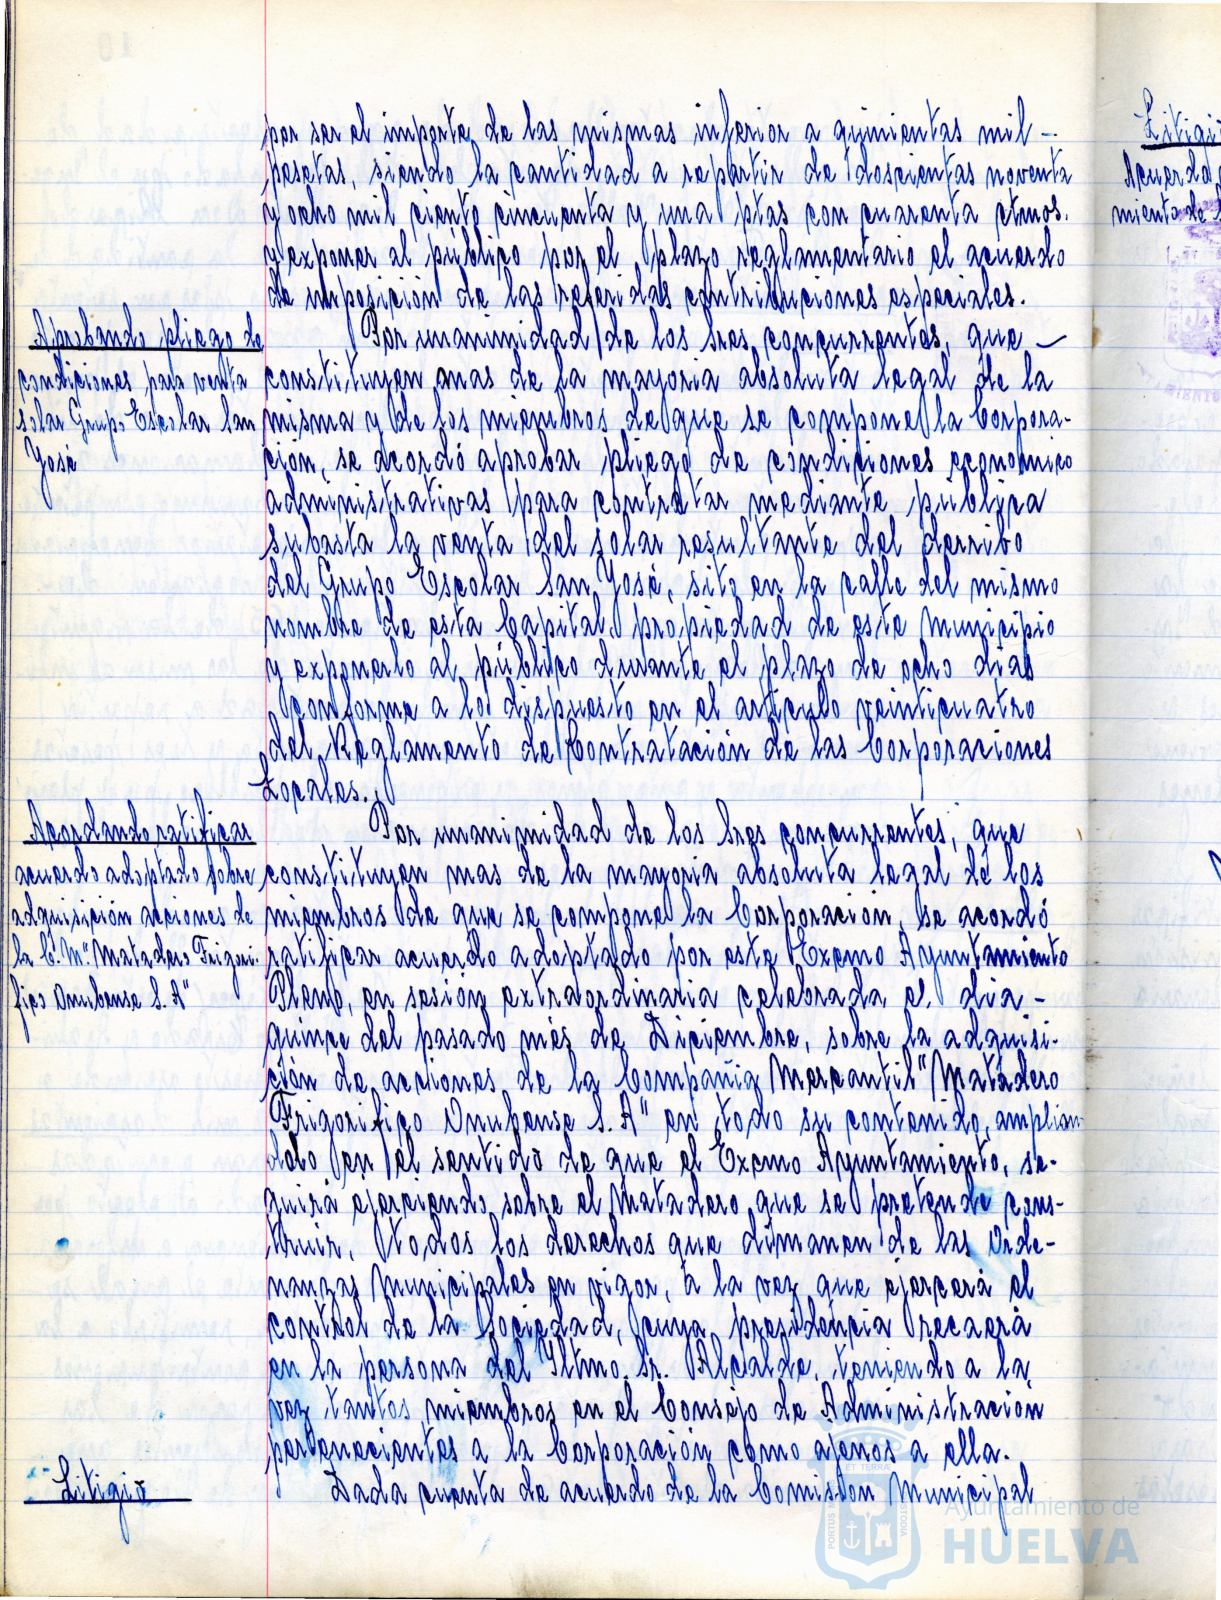 por ser el importe de las mismas inferior a quinientas mil -
pesetas, siendo la cantidad a repartir de doscientas noventa
y ocho mil ciento cincuenta y una ptas con cuarenta ctmos.
y exponer al público por el plazo reglamentario el acuerdo
de imposición de las referidas contribuciones especiales.
Aprobando pliego de
condiciones para venta
solar Grupo Escolar San
José
Por unanimidad de los Sres. concurrentes, que -
constituyen mas de la mayoria absoluta legal de la
misma y de los miembros de que se compone la Corpora-
ción, se acordó aprobar pliego de condiciones economico
administrativas para contratar mediante pública
subasta la venta del solar resultante del derribo
del Grupo Escolar San José, sito en la calle del mismo
nombre de esta Capital, propiedad de este Municipio
y exponerlo al público durante el plazo de ocho dias
conforme a lo dispuesto en el articulo veinticuatro
del Reglamento de Contratación de las Corporaciones
Locales.
Acordando ratificar
acuerdo adoptado sobre
adquisición acciones de
la C.ª M. "Matadero Frigori-
fico Onubense S.A"
Por unanimidad de los Sres concurrentes, que
constituyen mas de la mayoria absoluta legal de los
miembros de que se compone la Corporación, se acordó
ratificar acuerdo adoptado por este Excmo Ayuntamiento
Pleno, en sesión extraordinaria celebrada el dia -
quince del pasado més de Diciembre, sobre la adquisi-
ción de acciones de la Compañia Mercantil "Matadero
Frigorifico Onubense S.A" en todo su contenido, amplian-
dolo en el sentido de que el Excmo Ayuntamiento, se-
guirá ejerciendo sobre el Matadero que se pretende cons-
truir, todos los derechos que dimanen de las Orde-
nanzas Municipales en vigor, a la vez que ejercerá el
control de la Sociedad, cuya presidencia recaerá
en la persona del Iltmo. Sr. Alcalde, teniendo a la
vez tantos miembros en el Consejo de Administración
pertenecientes a la Corporación como ajenos a ella.
Litigio
Dada cuenta de acuerdo de la Comisión Municipal
Acuerdo
miento de
Ayuntamiento de
HUELVA